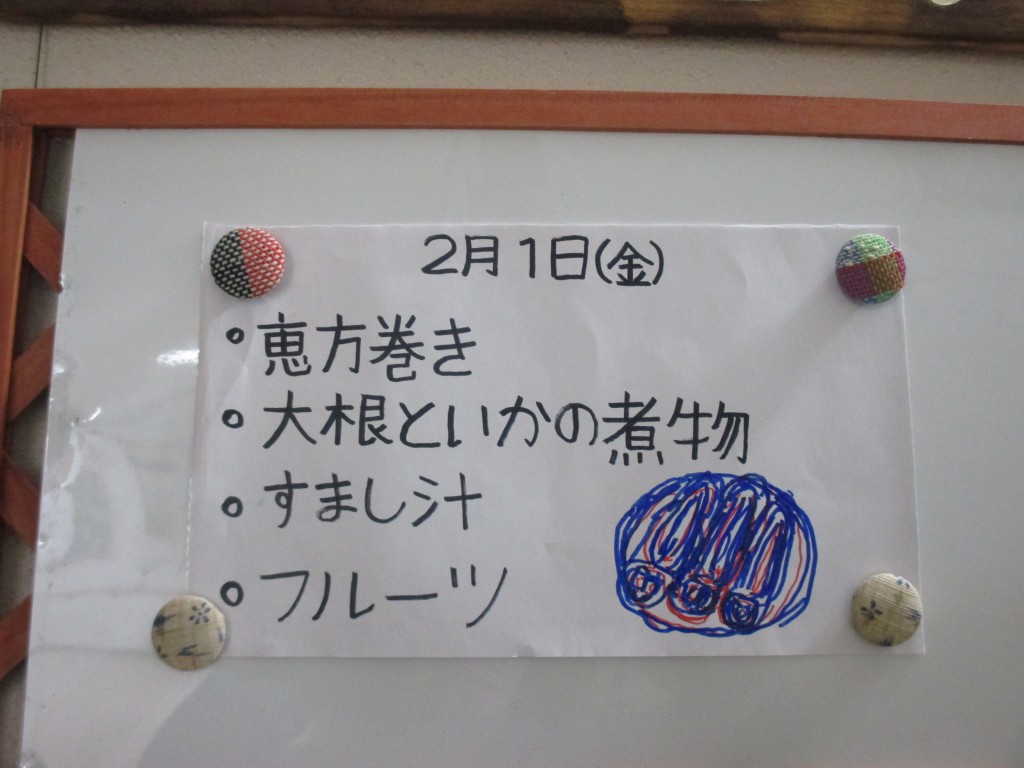 2月1日(金)
・恵方巻き
・大根といかの煮物
・すまし汁
・フルーツ